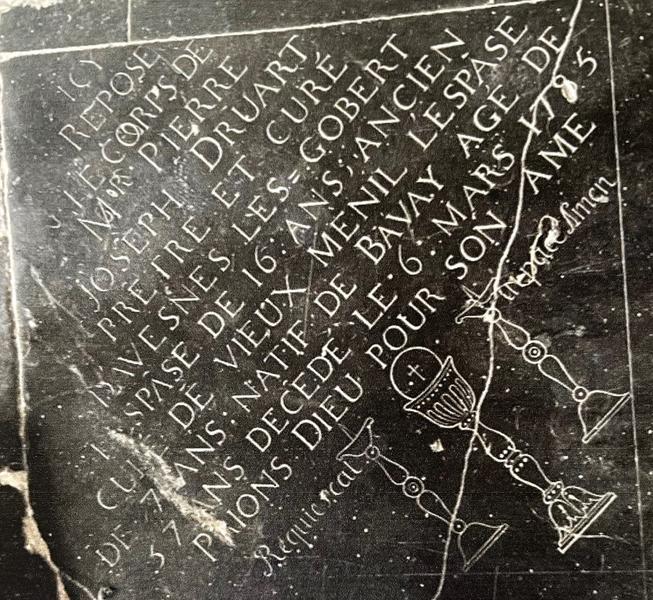 ICY
REPOSE
LE CORPS DE
Mr PIERRE
JOSEPH DRUART
PRETRE ET CURÉ
DAVESNES LES-GOBERT
LESPASE DE 16: ANS, ANCIEN
CURÉ DE VIEUX MENIL LESPASE
DE 7 ANS. NATIF DE BAVAY AGÉ DE
57 ANS DECÉDÉ LE·6·MARS 1785
PRIONS DIEU POUR SON AME
Requiescat in pace Amen